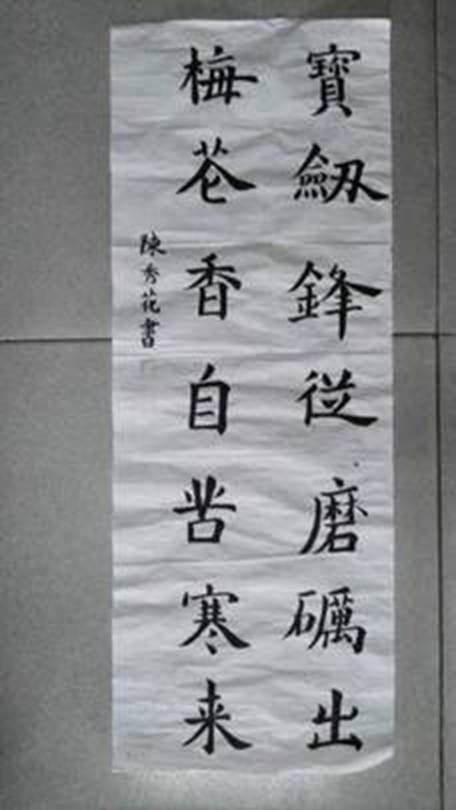 寶劔鋒從磨礪出
梅花香自苦寒来
陳秀花書